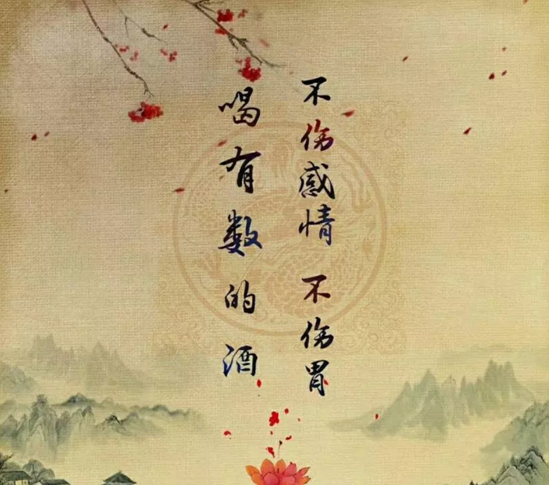 不伤感情 不伤胃
喝有数的酒